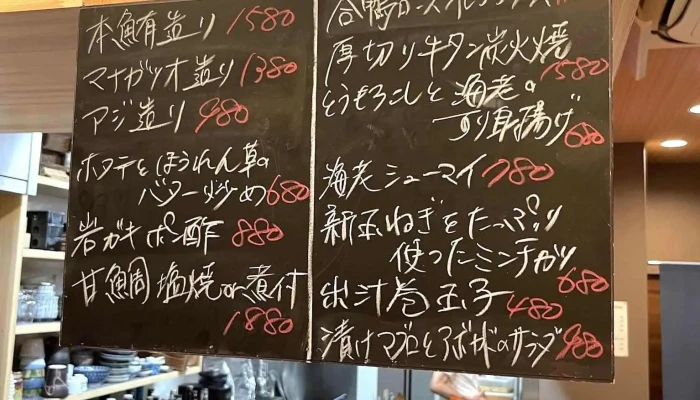 本鮪造り 1580
マナガツオ造り 1380
アジ造り 980
ホタテとほうれん草の
バター炒め 680
岩ガキポン酢 880
甘鯛塩焼or煮付
1880
合鴨ロース
厚切り牛タン炭火焼
1580
とうもろこしと海老の
すり身揚げ 680
海老シューマイ 780
新玉ねぎをたっぷり
使ったミンチカツ
680
出汁巻玉子 480
漬けマグロとアボカドのサラダ 980